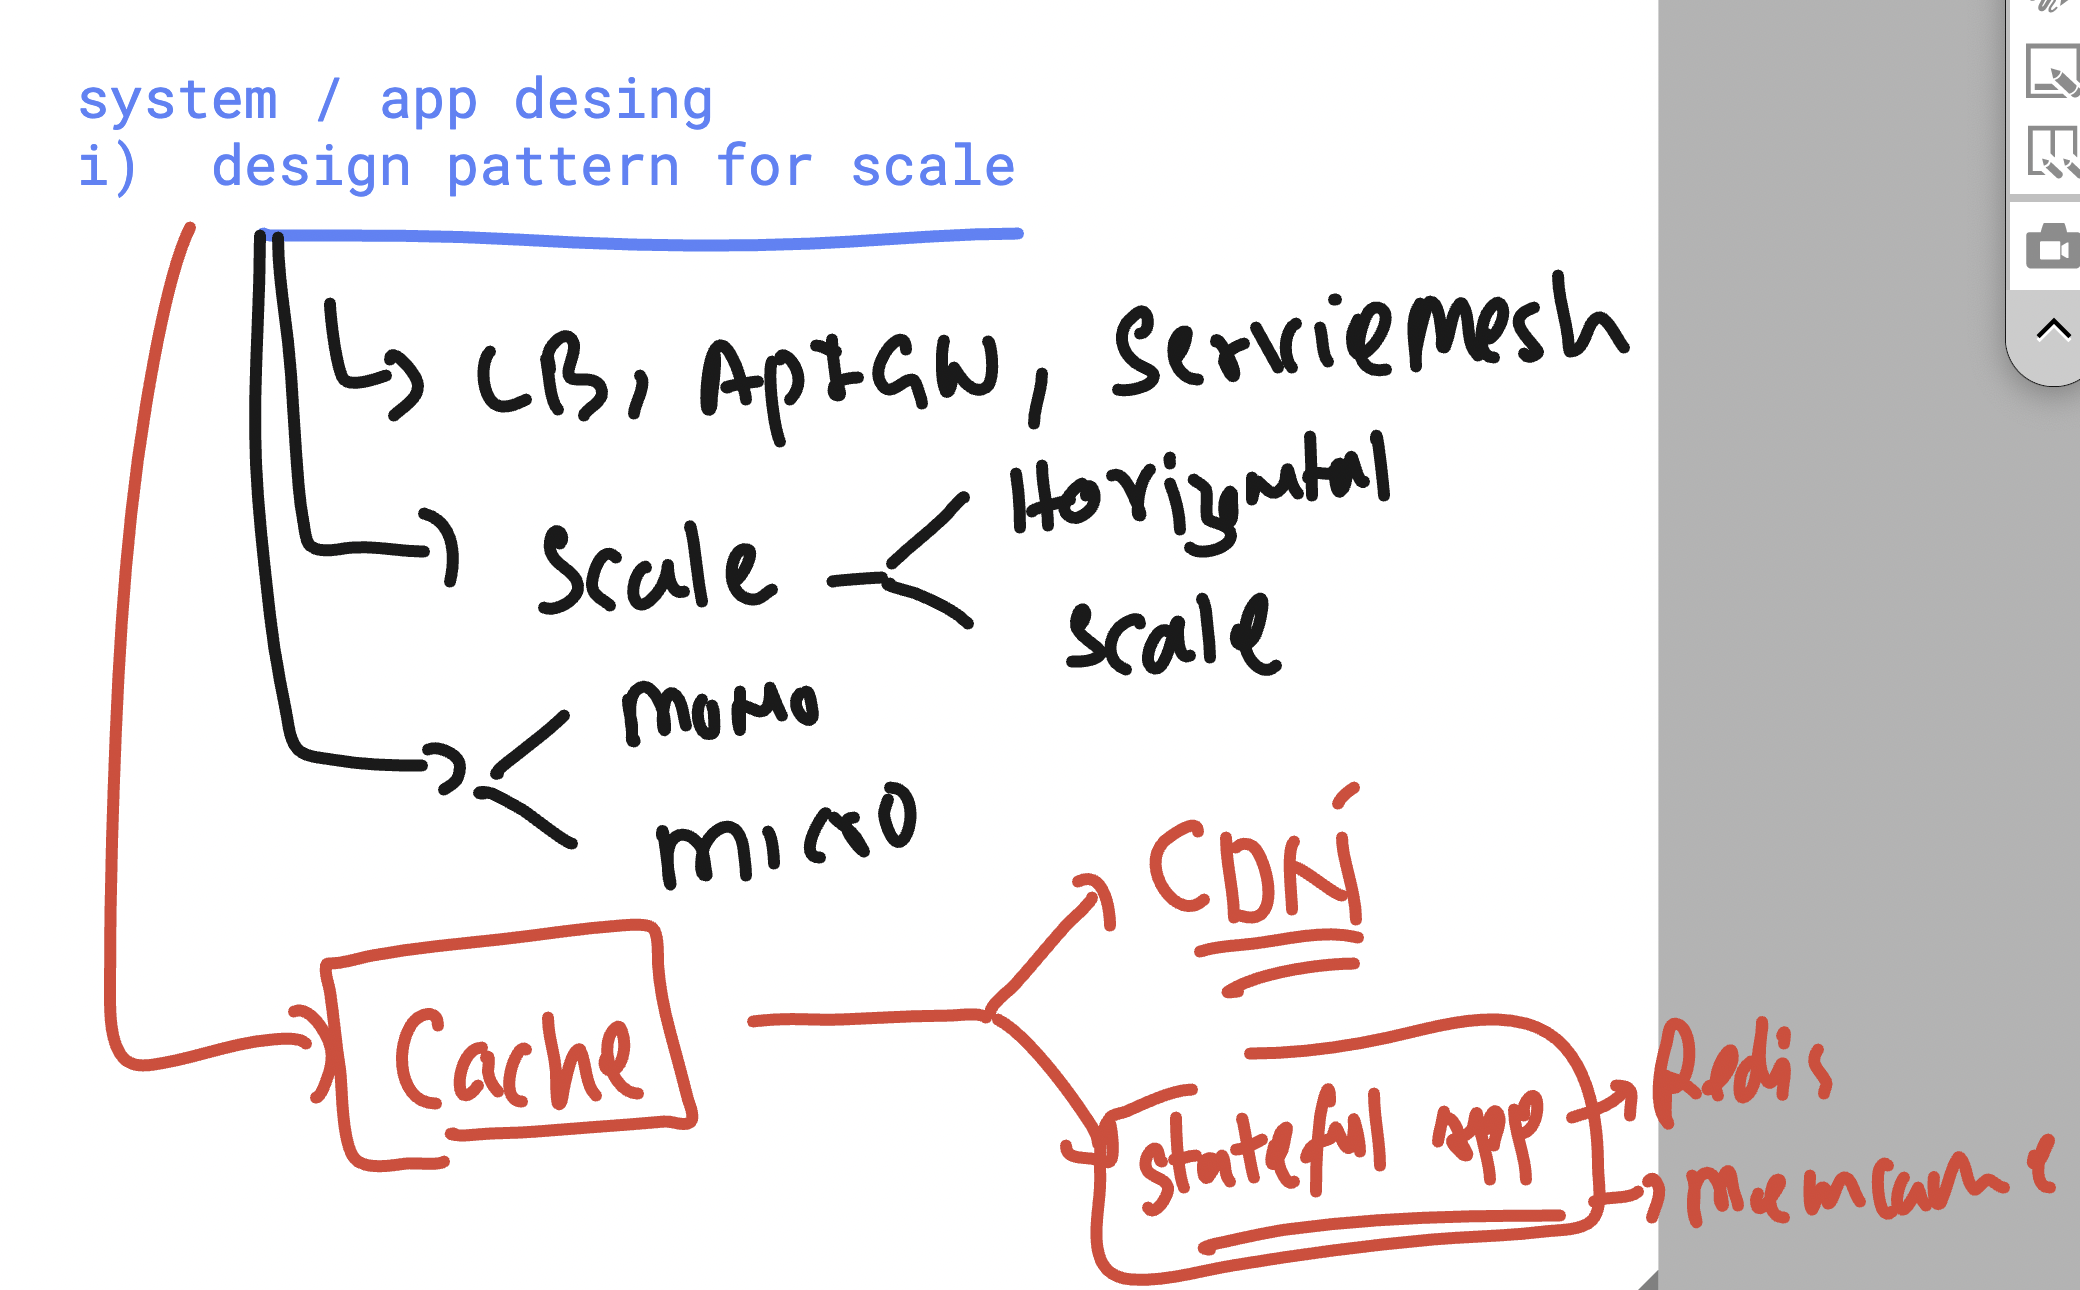 system / app desing
i) design pattern for scale
LB, ApIGW, Serviemesh
Scale
Horizontal
scale
mono
micro
Cache
CDN
stateful app
Redis
memcache